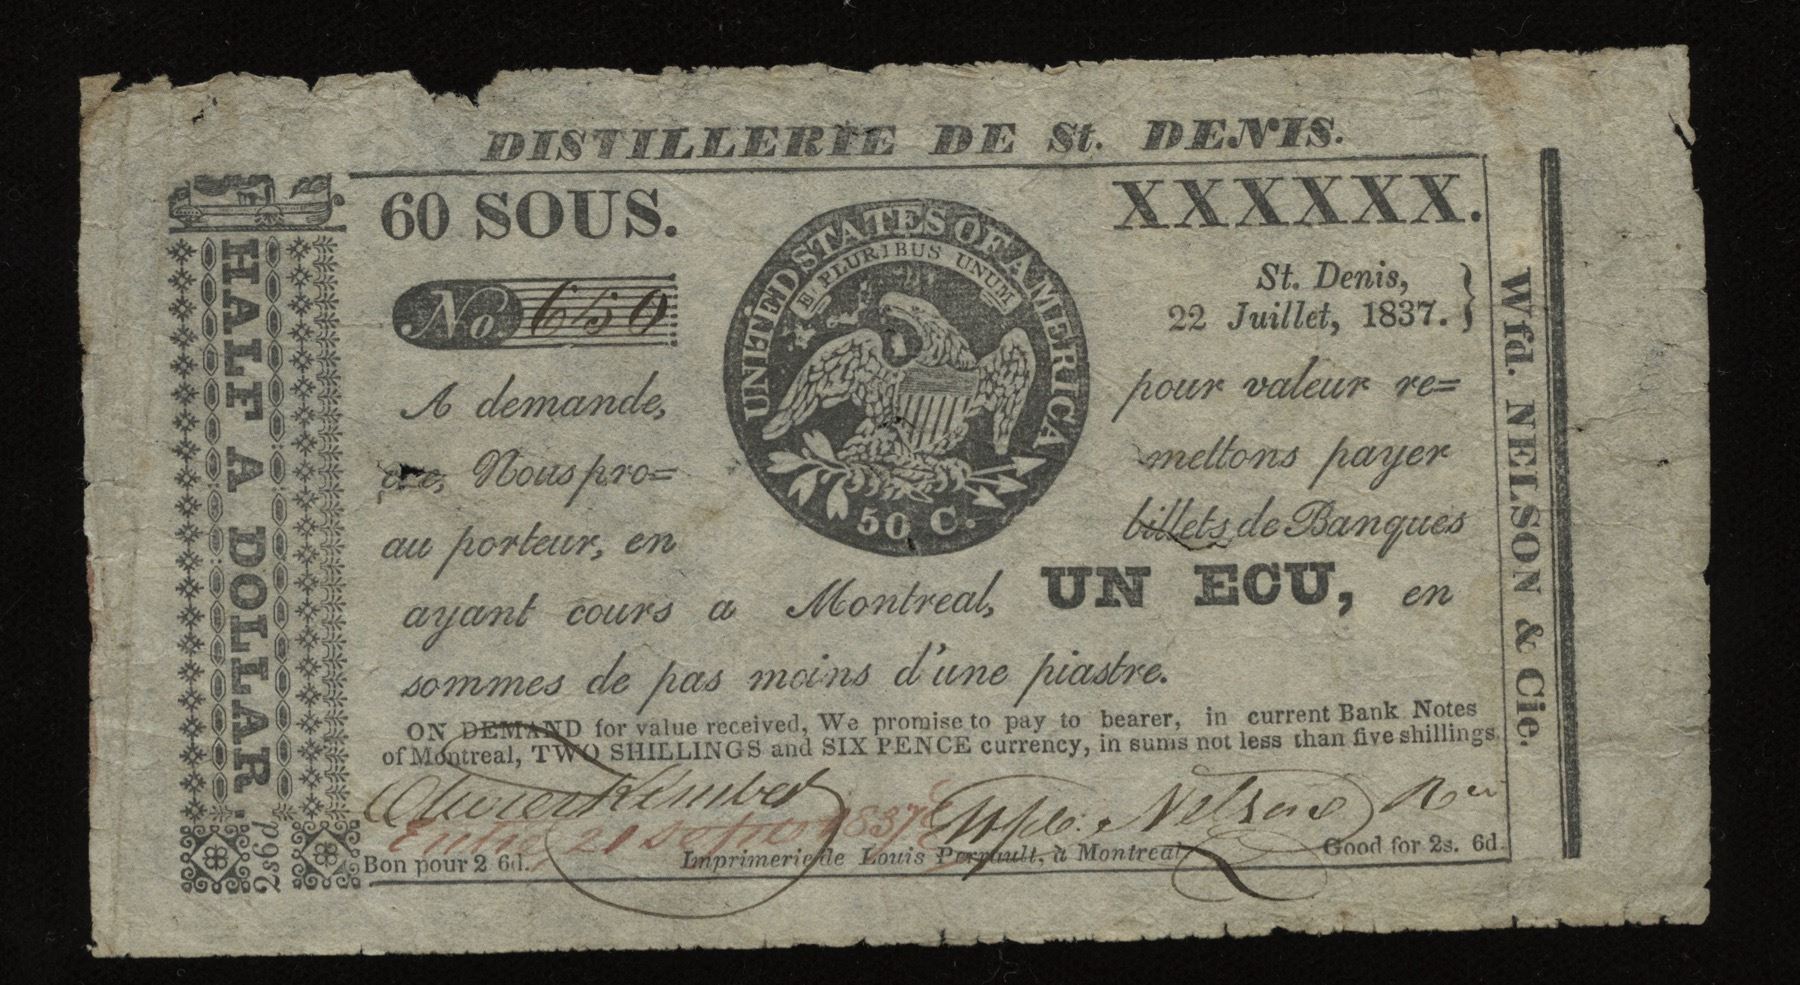 DISTILLERIE DE St. DENIS.
60 SOUS.
XXXXXX.
UNITED STATES OF AMERICA
E PLURIBUS UNUM
50 C.
No 650
St. Denis,
22 Juillet, 1837.
A demande, pour valeur re=
çue, Nous pro= mettons payer
au porteur, en billets de Banques
ayant cours a Montreal, UN ECU, en
sommes de pas moins d'une piastre.
ON DEMAND for value received, We promise to pay to bearer, in current Bank Notes
of Montreal, TWO SHILLINGS and SIX PENCE currency, in sums not less than five shillings
Nelson
21 1837
Bon pour 2 6d.
Imprimerie de Louis Perrault, à Montreal
Good for 2s. 6d.
HALF A DOLLAR.
2s6d
Wfd. NELSON & Cie.